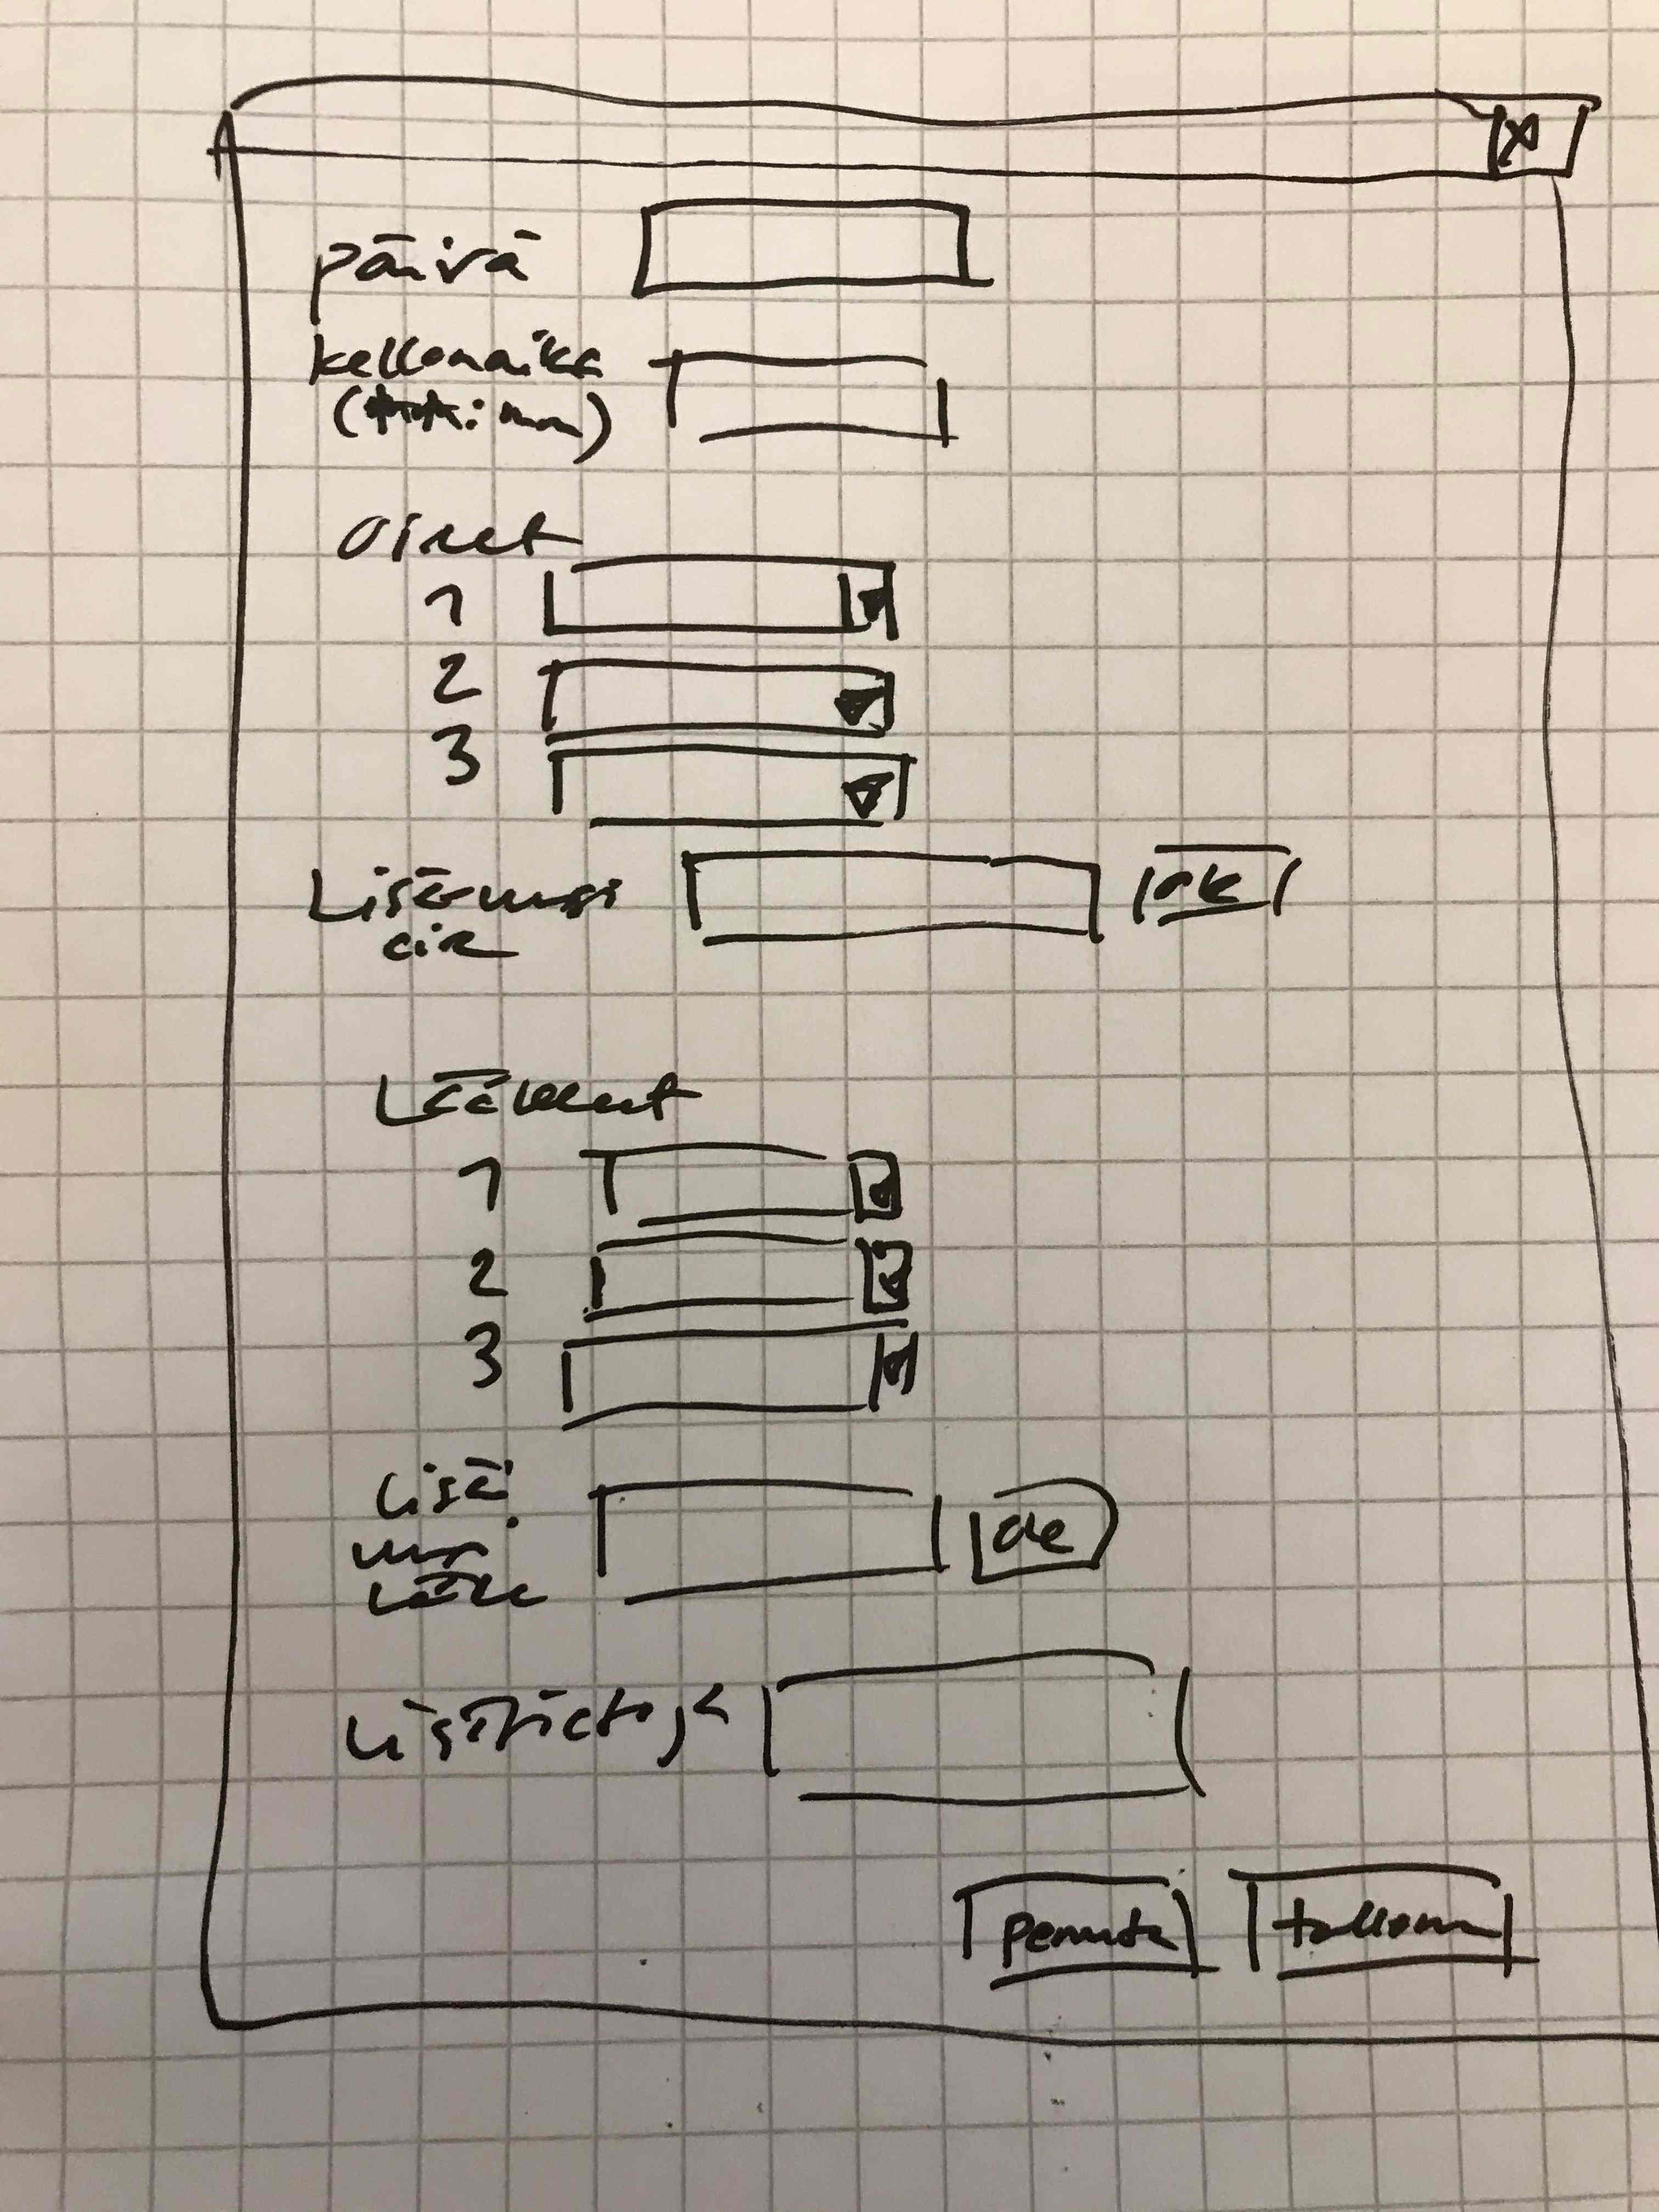 X
päivä
kellonaika
(tt:mm)
oireet
1
2
3
Lisää uusi ok
oire
Lääkkeet
1
2
3
Lisää ok
uusi
lääke
Lisätietoja
peruuta tallenna